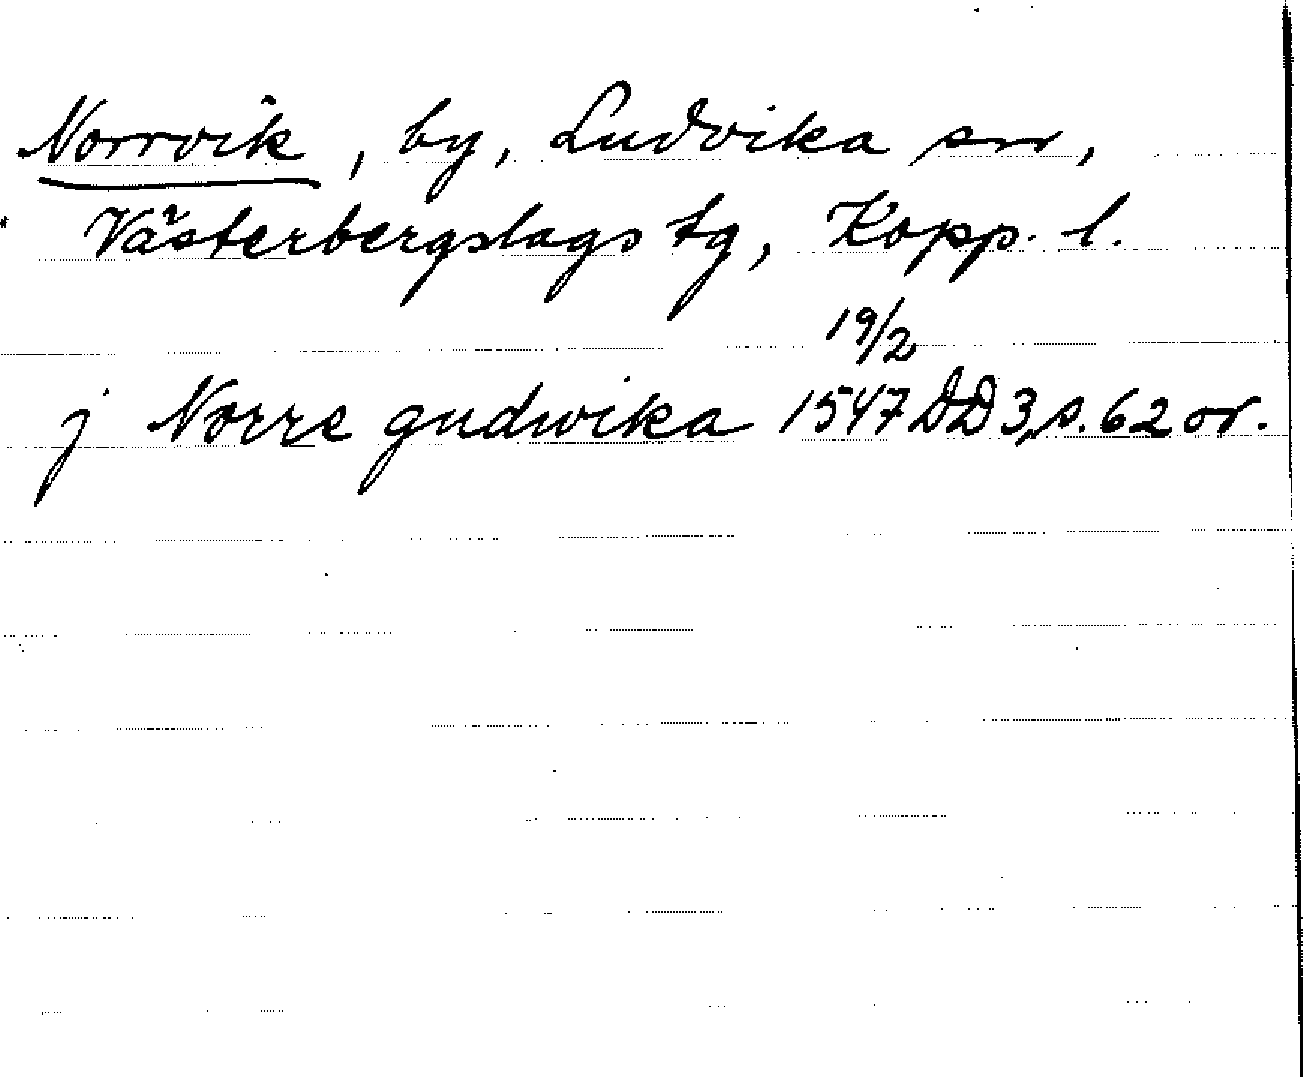 Norrvik, by, Ludvika sn,
Västerbergslags tg, Kopp. l.
19/2
j Norre gudwika 1547 DD 3, s. 62 or.